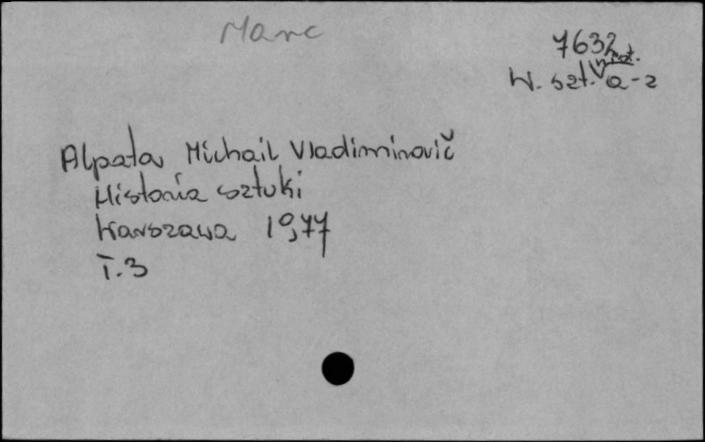 Marc
7632
W. szt. a-z
Alpatov Michail Vladimirovič
Historia sztuki
Warszawa 1977
T.3